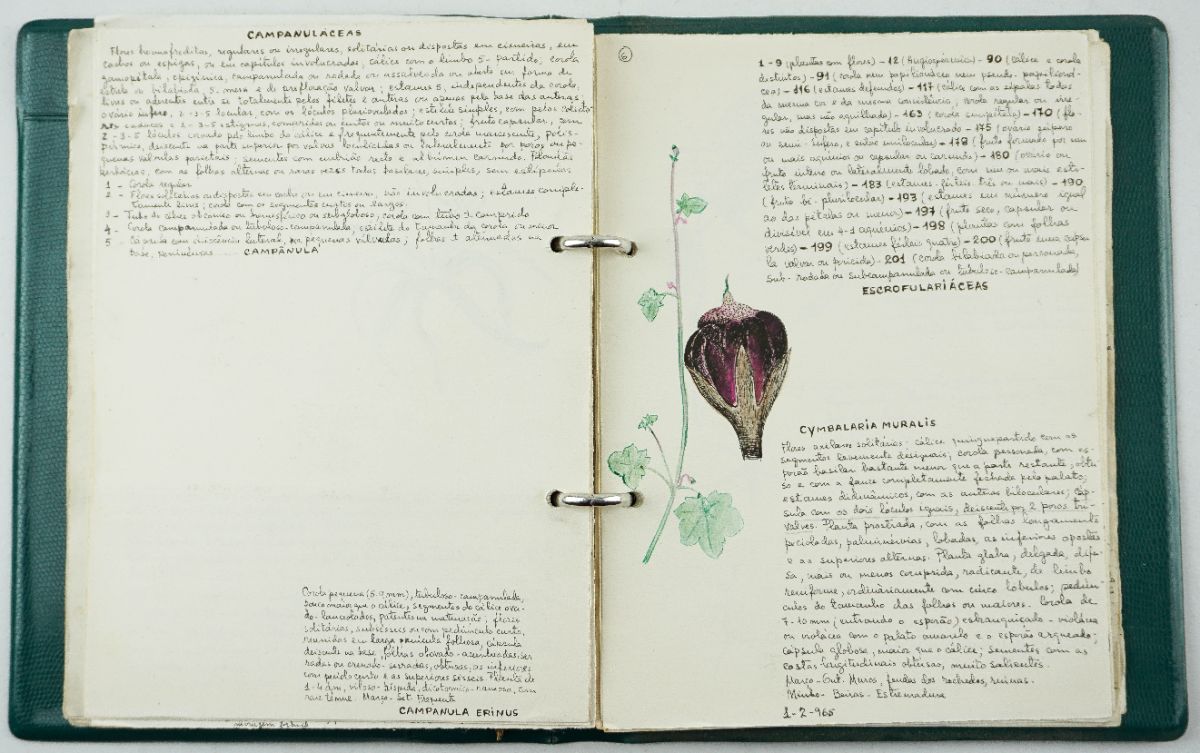 CAMPANULÁCEAS
Flores hermafroditas, regulares ou irregulares, solitárias ou dispostas em cimeiras, em
cachos ou espigas, ou em capítulos involucrados, cálice com o limbo 5-partido; corola
gamopétala, epigínica, campanulada ou rodada ou assalveada ou aberta em forma de
estrela ou bilabiada, 5-mera e de prefloração valvar; estames 5, independentes da corola,
livres ou aderentes entre si totalmente pelos filetes e anteras ou apenas pela base das anteras;
ovário ínfero, 2-3-5 locular, com os lóculos pluriovulados; estilete simples, com pelos colecto-
res caducos e 2-3-5 estigmas, compridos ou curtos ou muito curtos; fruto capsular, com
2-3-5 lóculos coroado pelo limbo do cálice e frequentemente pela corola marcescente, polis-
pérmico, deiscente na parte superior por valvas loculicidas ou lateralmente por poros ou pe-
quenas válvulas parietais; sementes com embrião recto e albúmen carnudo. Plantas
herbáceas, com as folhas alternas ou raras vezes todas basilares, simples, sem estípulas;
1 - Corola regular
2 - Flores solitárias ou dispostas em cacho ou em cimeira, não involucradas; estames comple-
tamente livres; corola com os segmentos curtos ou largos.
3 - Tubo do cálice obcónico ou hemisférico ou subgloboso; corola com tubo comprido
4 - Corola campanulada ou tubuloso-campanulada, estilete do tamanho da corola ou menor
5 - Cápsula com deiscência lateral, por pequenas válvulas; folhas ± atenuadas na
base, peninérveas ..... CAMPÂNULA
Corola pequena (5-9 mm), tubuloso-campanulada,
pouco maior que o cálice, segmentos do cálice ova-
do-lanceolados, patentes na maturação; flores
solitárias, subsésseis ou com pedúnculo curto,
reunidas em larga panícula folhosa, cápsula
deiscente na base, folhas obovado-acunheadas, ser
radas ou crenado-serradas, obtusas, as inferiores
com pecíolo curto e as superiores sésseis. Planta de
1-4 dm, viloso-híspida, dicotómico-ramosa, com
raiz ténue. Março-Set. Frequente
CAMPANULA ERINUS
6
1-9 (plantas com flores) - 12 (Angiospérmica) - 90 (cálice e corola
distintos) - 91 (corola nem papilionácea nem pseudo-papilioná-
cea) - 116 (estames definidos) - 117 (cálice com as sépalas todas
da mesma cor e da mesma consistência, corola regular ou irre-
gular, mas não aquilhada) - 163 (corola simpétala) - 170 (flo-
res não dispostas em capítulo involucrado - 175 (ovário súpero
ou semi-ínfero, e então unilocular) - 178 (fruto formado por um
ou mais aquénios ou capsular ou carnudo) - 180 (ovário ou
fruto inteiro ou lateralmente lobado, com um ou mais esti-
letes terminais) - 183 (estames férteis três ou mais) - 190
(fruto bi-plurilocular) - 193 (estames em número igual
ao das pétalas ou menor) - 197 (fruto seco, capsular ou
divisível em 4-1 aquénios) - 198 (plantas com folhas
verdes) - 199 (estames férteis quatro) - 200 (fruto uma cápsu
la valvar ou poricida) - 201 (corola bilabiada ou personada,
sub-rodada ou subcampanulada ou tubuloso-campanulada)
ESCROFULARIÁCEAS
CYMBALARIA MURALIS
Flores axilares solitárias - cálice quinquepartido com os
segmentos levemente desiguais; corola personada, com es-
porão basilar bastante menor que a parte restante, obtu
so e com a fauce completamente fechada pelo palato;
estames didinâmicos, com as anteras biloculares; cáp-
sula com os dois lóculos iguais, deiscente por 2 poros tri-
valves. Planta prostrada, com as folhas longamente
pecioladas, palminérvias, lobadas, as inferiores opostas
e as superiores alternas. Planta glabra, delgada, difu-
sa, mais ou menos comprida, radicante, de limbo
reniforme, ordinàriamente com cinco lóbulos; pedún-
culos do tamanho das folhas ou maiores. Corola de
7-10 mm (entrando o esporão) esbranquiçado-violácea
ou violácea com o palato amarelo e o esporão arqueado;
cápsula globosa, maior que o cálice; sementes com as
costas longitudinais obtusas, muito salientes.
Março-Out. Muros, fendas dos rochedos, ruínas.
Minho - Beiras - Estremadura
1-2-965